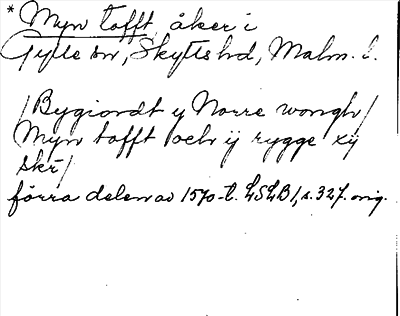 * Myn tofft, åker i
Gylle sn, Skytts hd, Malm. l.
/Bygiordt y Norre wongh/
Myn tofft och ij rygge xij
skr/
förra delen av 1570-t. LSLB 1, s. 327. orig.